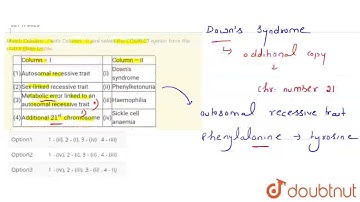 Match Column - I with Column - II and select the CORRECT option from the codes given below.
Column - I Column - II
(1) Autosomal recessive trait (i) Down's syndrome
(2) Sex linked recessive trait (ii) Phenylketonuria
(3) Metabolic error linked to an autosomal recessive trait (iii) Haemophilia
(4) Additional 21st chromosome (iv) Sickle cell anaemia
Option1
Option2
Option3
Down's Syndrome
additional copy
Chr. number 21
autosomal recessive trait
Phenylalanine → tyrosine
doubtnut